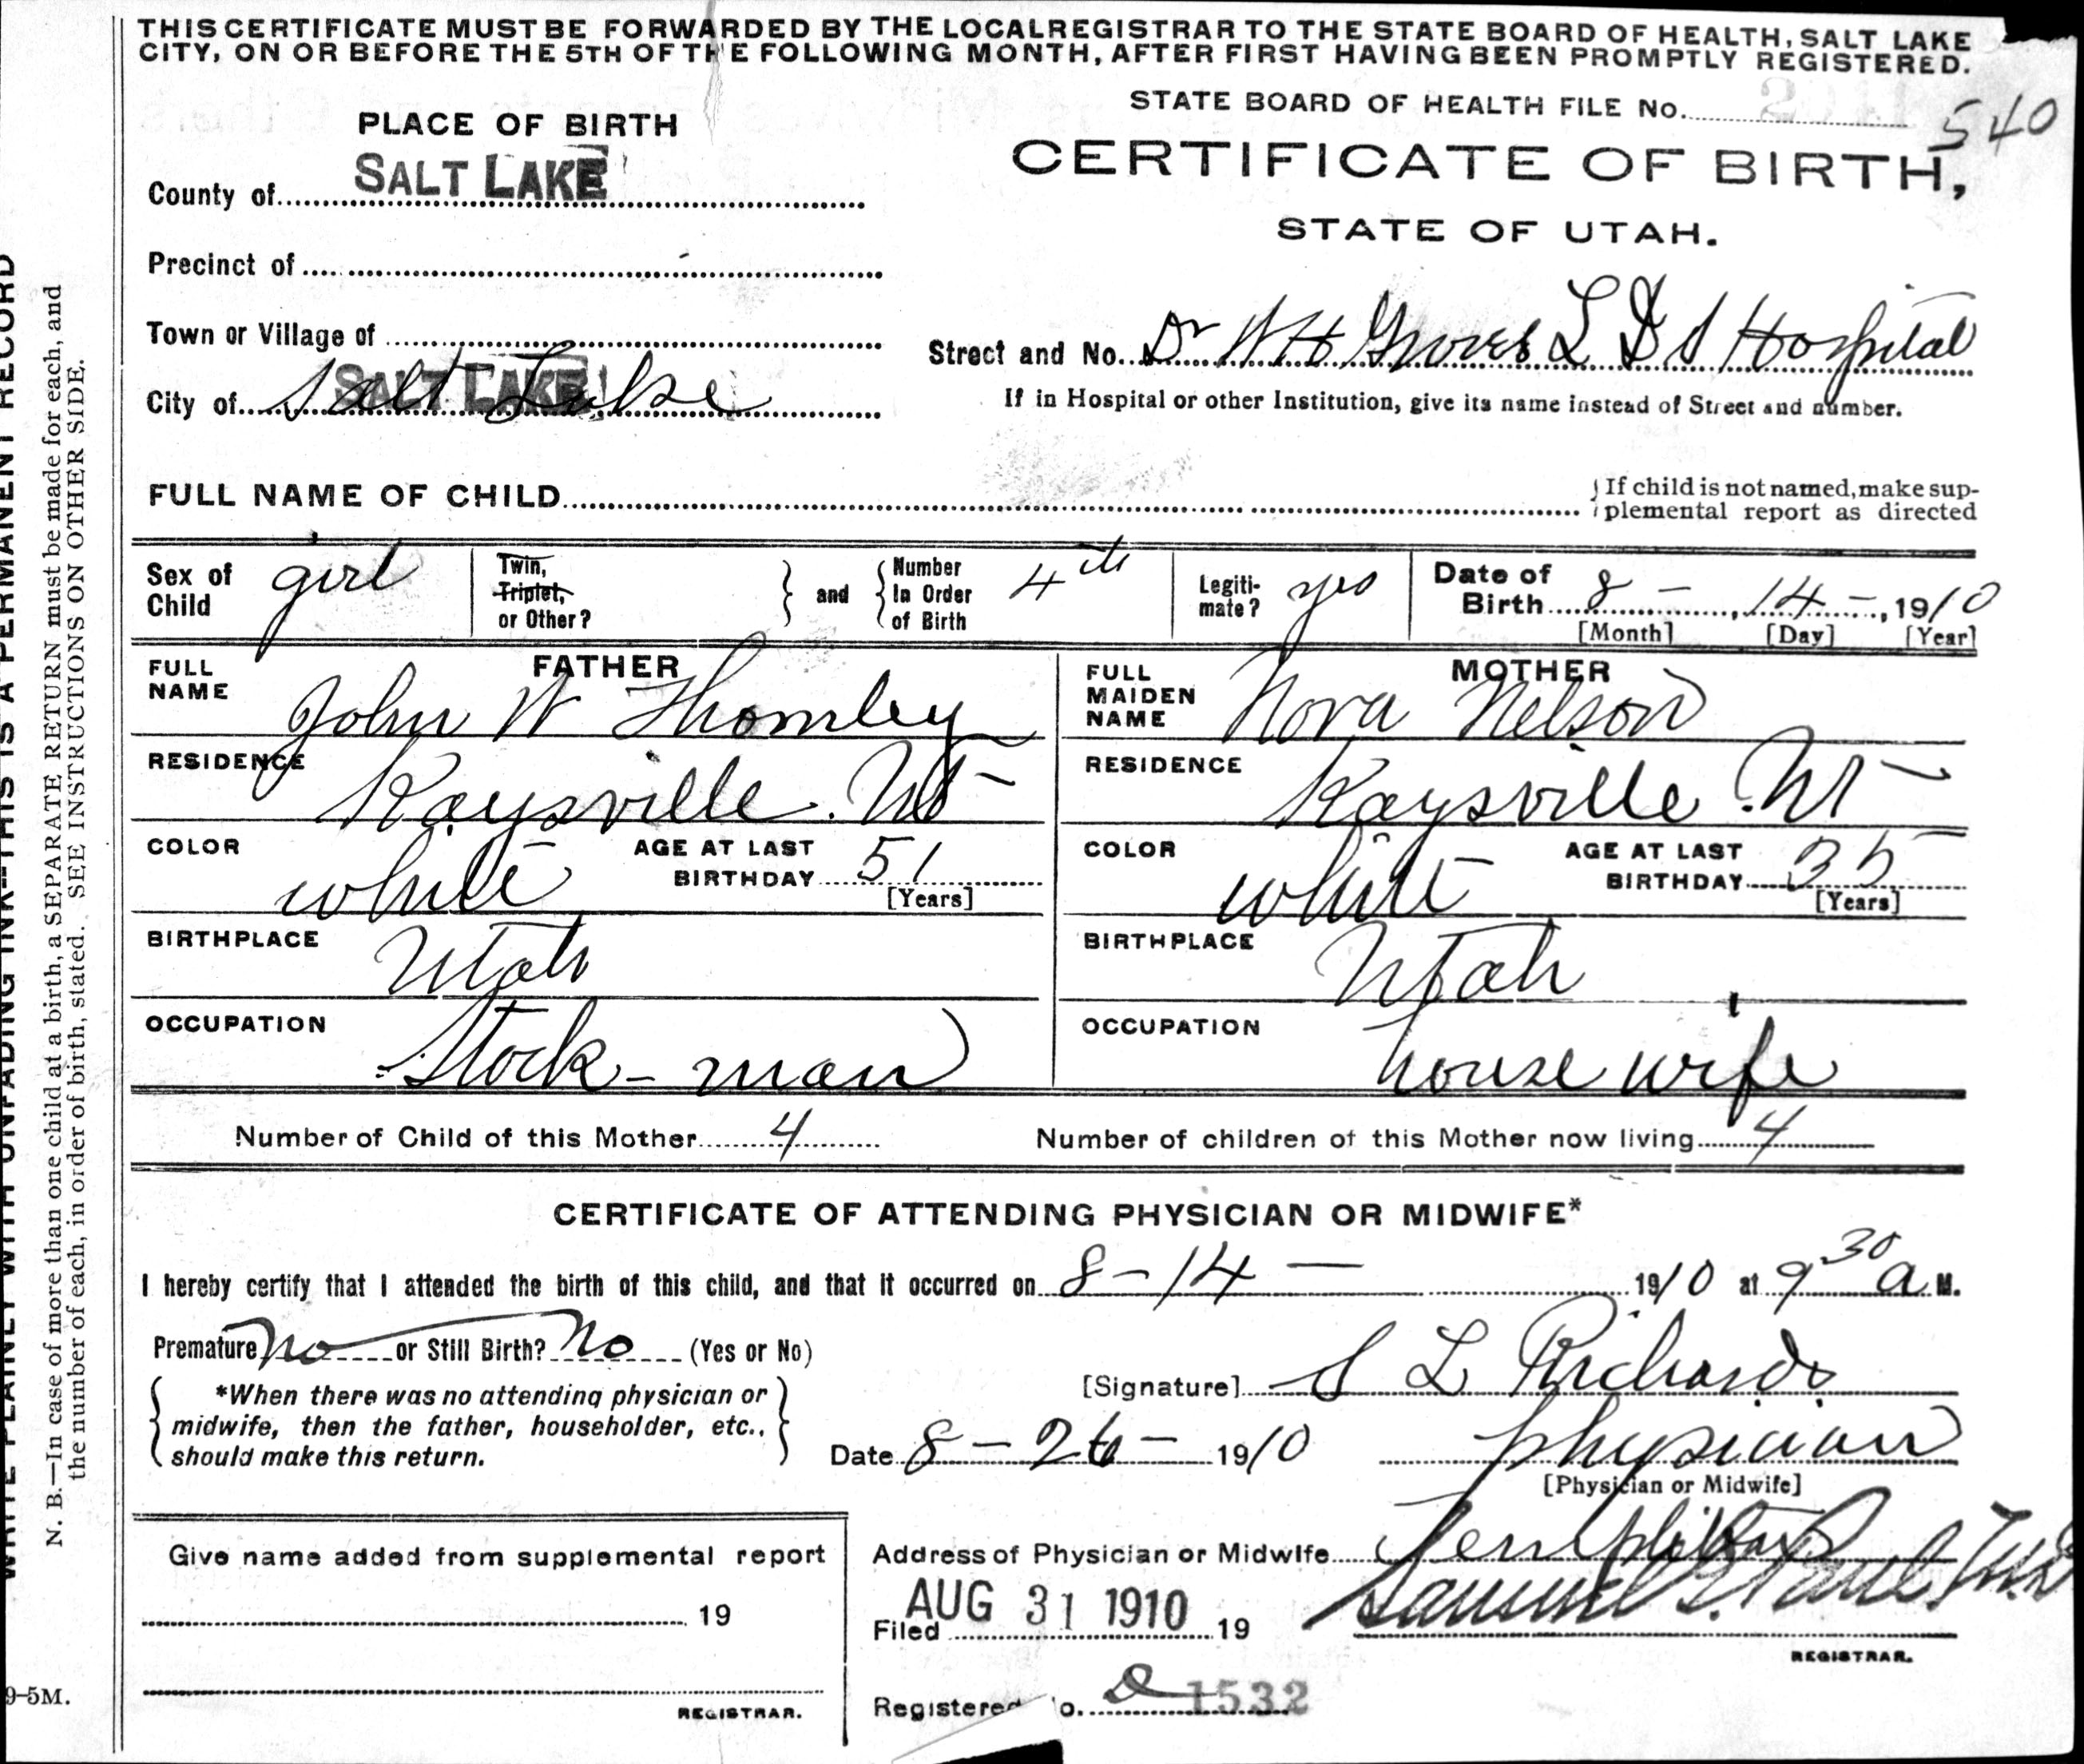 THIS CERTIFICATE MUST BE FORWARDED BY THE LOCAL REGISTRAR TO THE STATE BOARD OF HEALTH, SALT LAKE
CITY, ON OR BEFORE THE 5TH OF THE FOLLOWING MONTH, AFTER FIRST HAVING BEEN PROMPTLY REGISTERED.
STATE BOARD OF HEALTH FILE No. 540
PLACE OF BIRTH
CERTIFICATE OF BIRTH,
STATE OF UTAH.
County of SALT LAKE
Precinct of
Town or Village of
City of SALT LAKE Salt Lake
Street and No. Dr W H Groves L D S Hospital
If in Hospital or other Institution, give its name instead of Street and number.
FULL NAME OF CHILD
If child is not named, make sup-
plemental report as directed
Sex of Child girl
Twin, Triplet, or Other? and Number In Order of Birth 4th
Legiti-mate? yes
Date of Birth 8 - , 14 - , 1910
[Month] [Day] [Year]
FATHER
FULL NAME John W Thornley
RESIDENCE Kaysville. Ut
COLOR white AGE AT LAST BIRTHDAY 51
[Years]
BIRTHPLACE Utah
OCCUPATION Stock-man
MOTHER
FULL MAIDEN NAME Nora Nelson
RESIDENCE Kaysville Ut
COLOR white AGE AT LAST BIRTHDAY 35
[Years]
BIRTHPLACE Utah
OCCUPATION house wife
Number of Child of this Mother 4 Number of children of this Mother now living 4
CERTIFICATE OF ATTENDING PHYSICIAN OR MIDWIFE*
I hereby certify that I attended the birth of this child, and that it occurred on 8-14- 1910 at 9 30 a M.
Premature no or Still Birth? No (Yes or No)
*When there was no attending physician or
midwife, then the father, householder, etc.,
should make this return.
[Signature] S L Richards
Date 8-26- 1910 physician
[Physician or Midwife]
Give name added from supplemental report
19
REGISTRAR.
Address of Physician or Midwife
Filed AUG 31 1910 19 Samuel G. Paul
REGISTRAR.
Registered No. 1532
WRITE PLAINLY WITH UNFADING INK--THIS IS A PERMANENT RECORD
N. B.—In case of more than one child at a birth, a SEPARATE RETURN must be made for each, and
the number of each, in order of birth, stated. SEE INSTRUCTIONS ON OTHER SIDE.
9-5M.